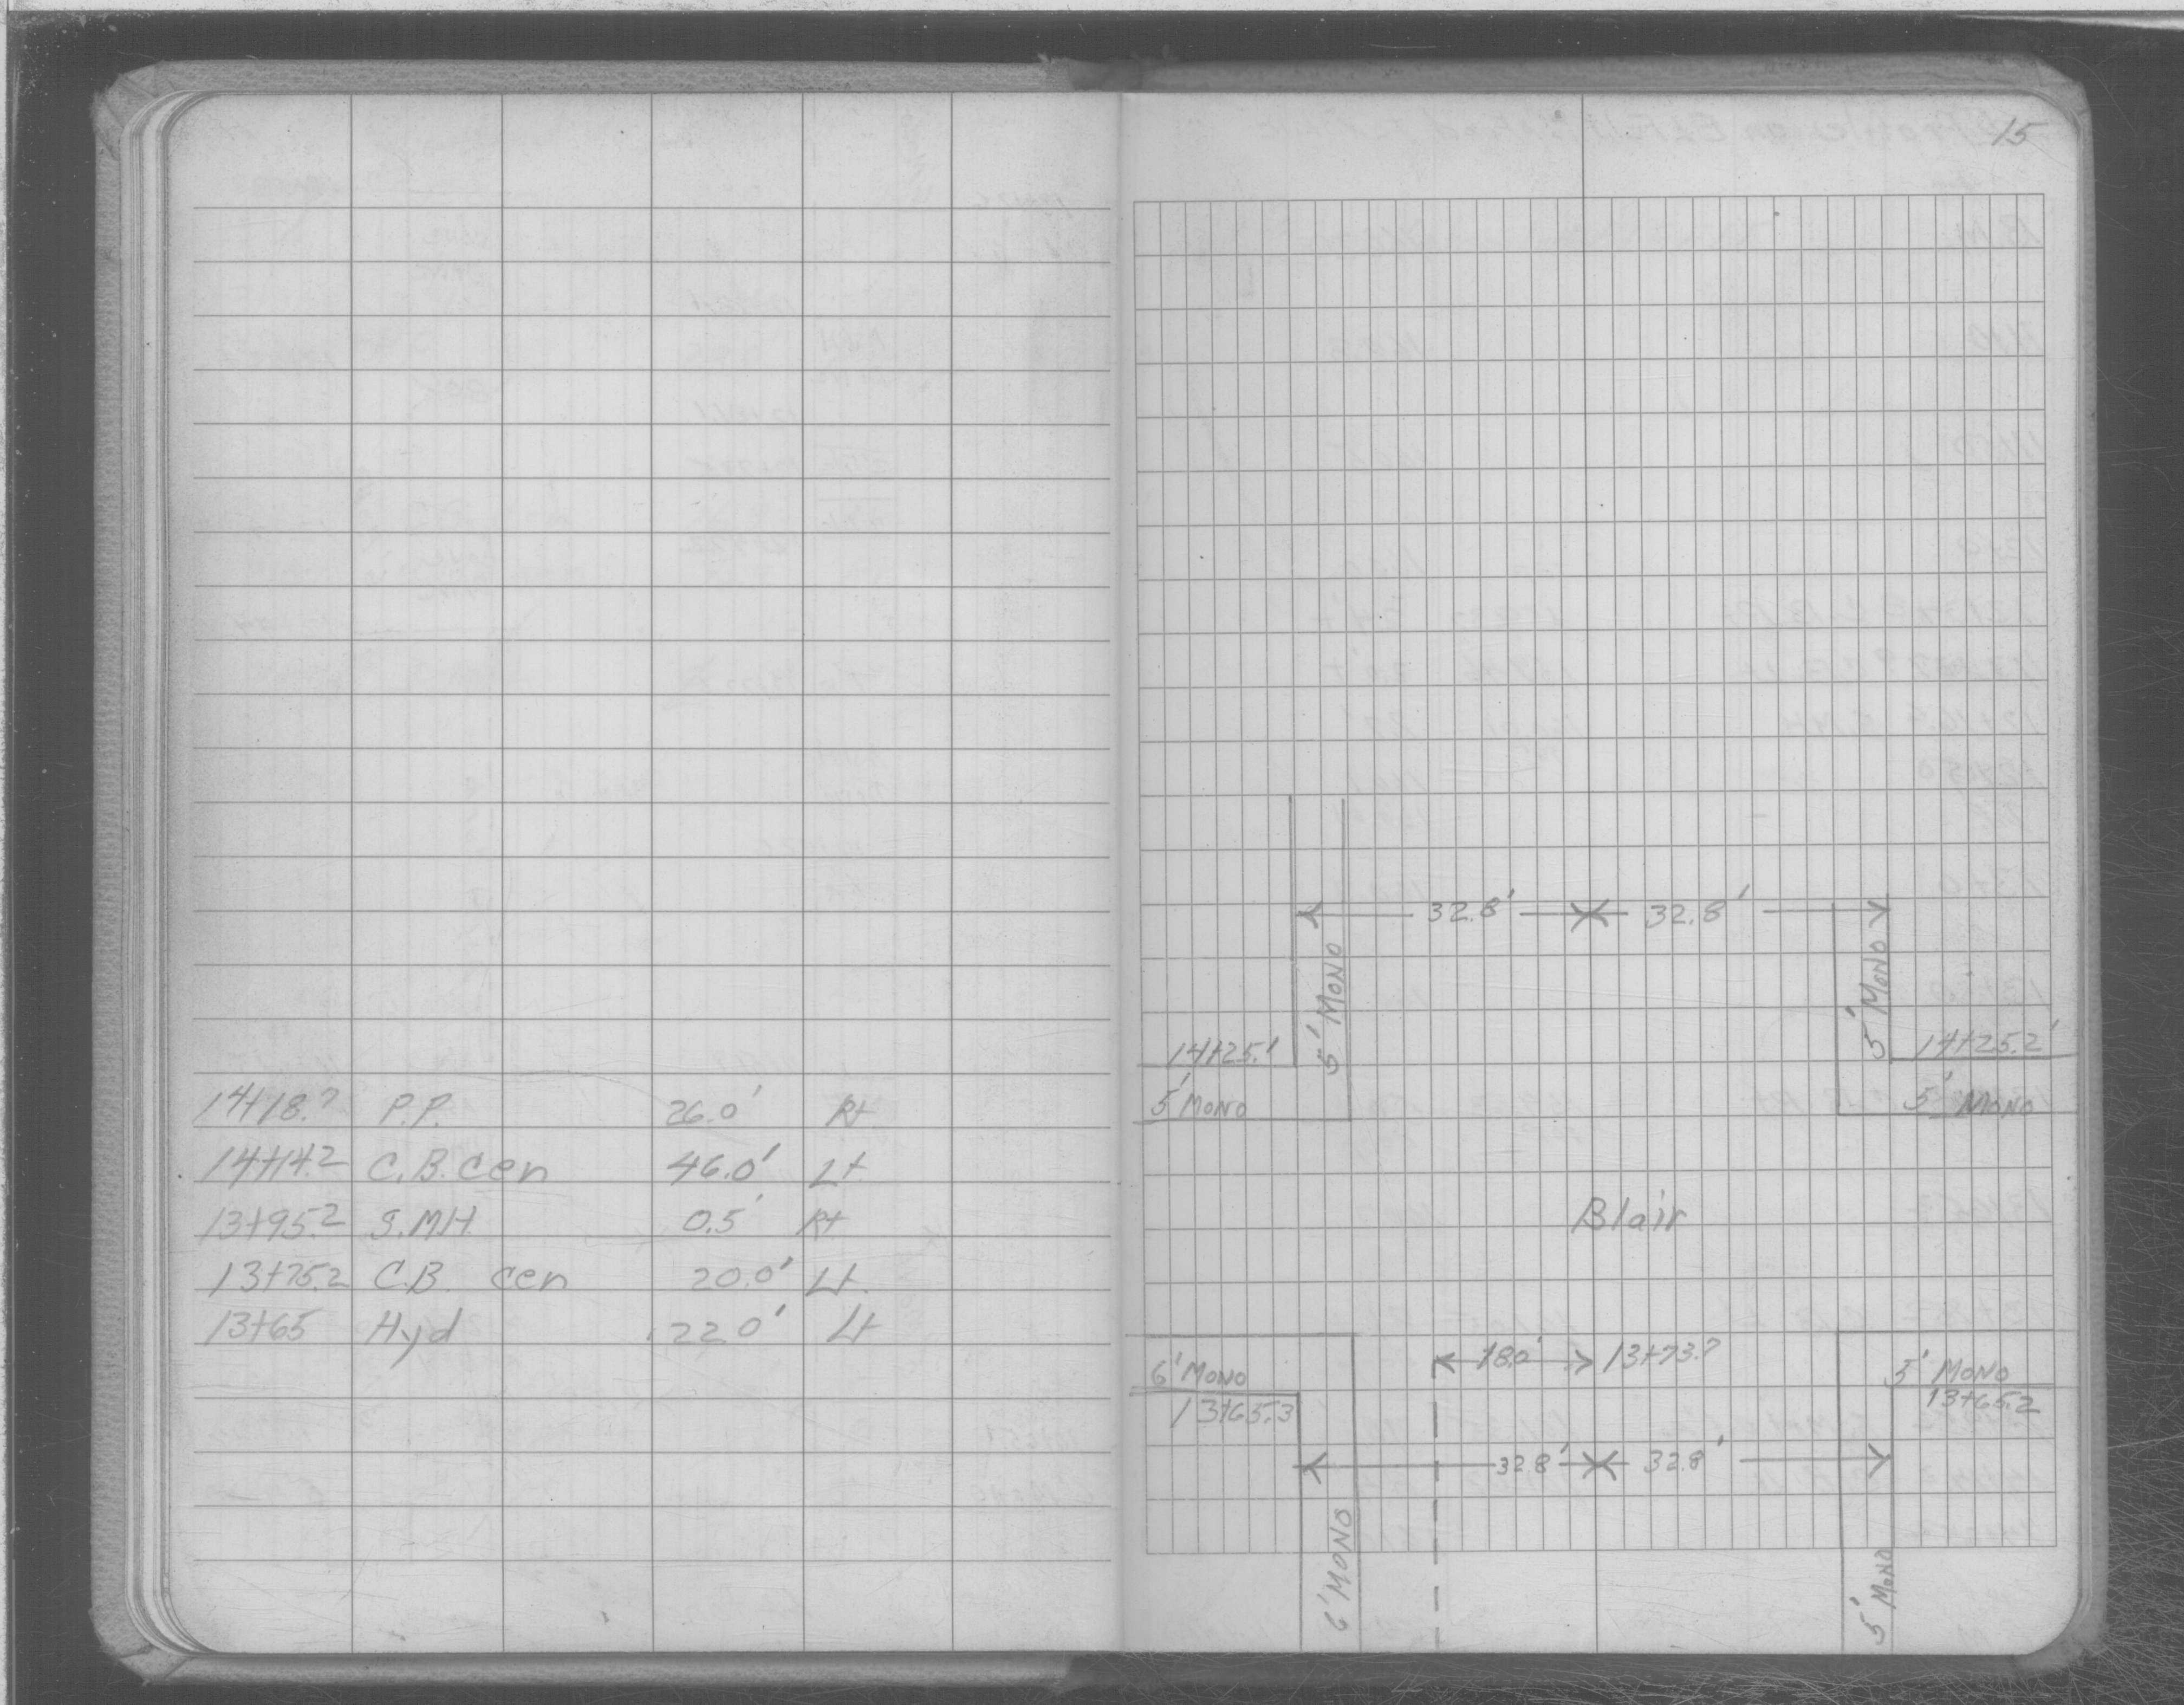 15
14+18.7 P.P. 26.0' Rt
14+14.2 C.B. cen 46.0' Lt
13+95.2 S.M.H. 0.5' Rt
13+75.2 C.B. cen 20.0' Lt.
13+65 Hyd 22.0' Lt
32.8' 32.8'
5' MONO
5' MONO
14+25.1
14+25.2'
5' MONO
5' MONO
Blair
18.0' 13+73.7
6' MONO
5' MONO
13+65.3
13+65.2
32.8' 32.8'
6' MONO
5' MONO